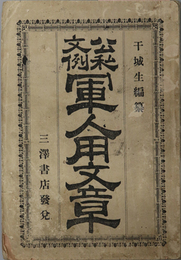 干城生編纂
公私文例
軍人用文章
三澤書店發兌